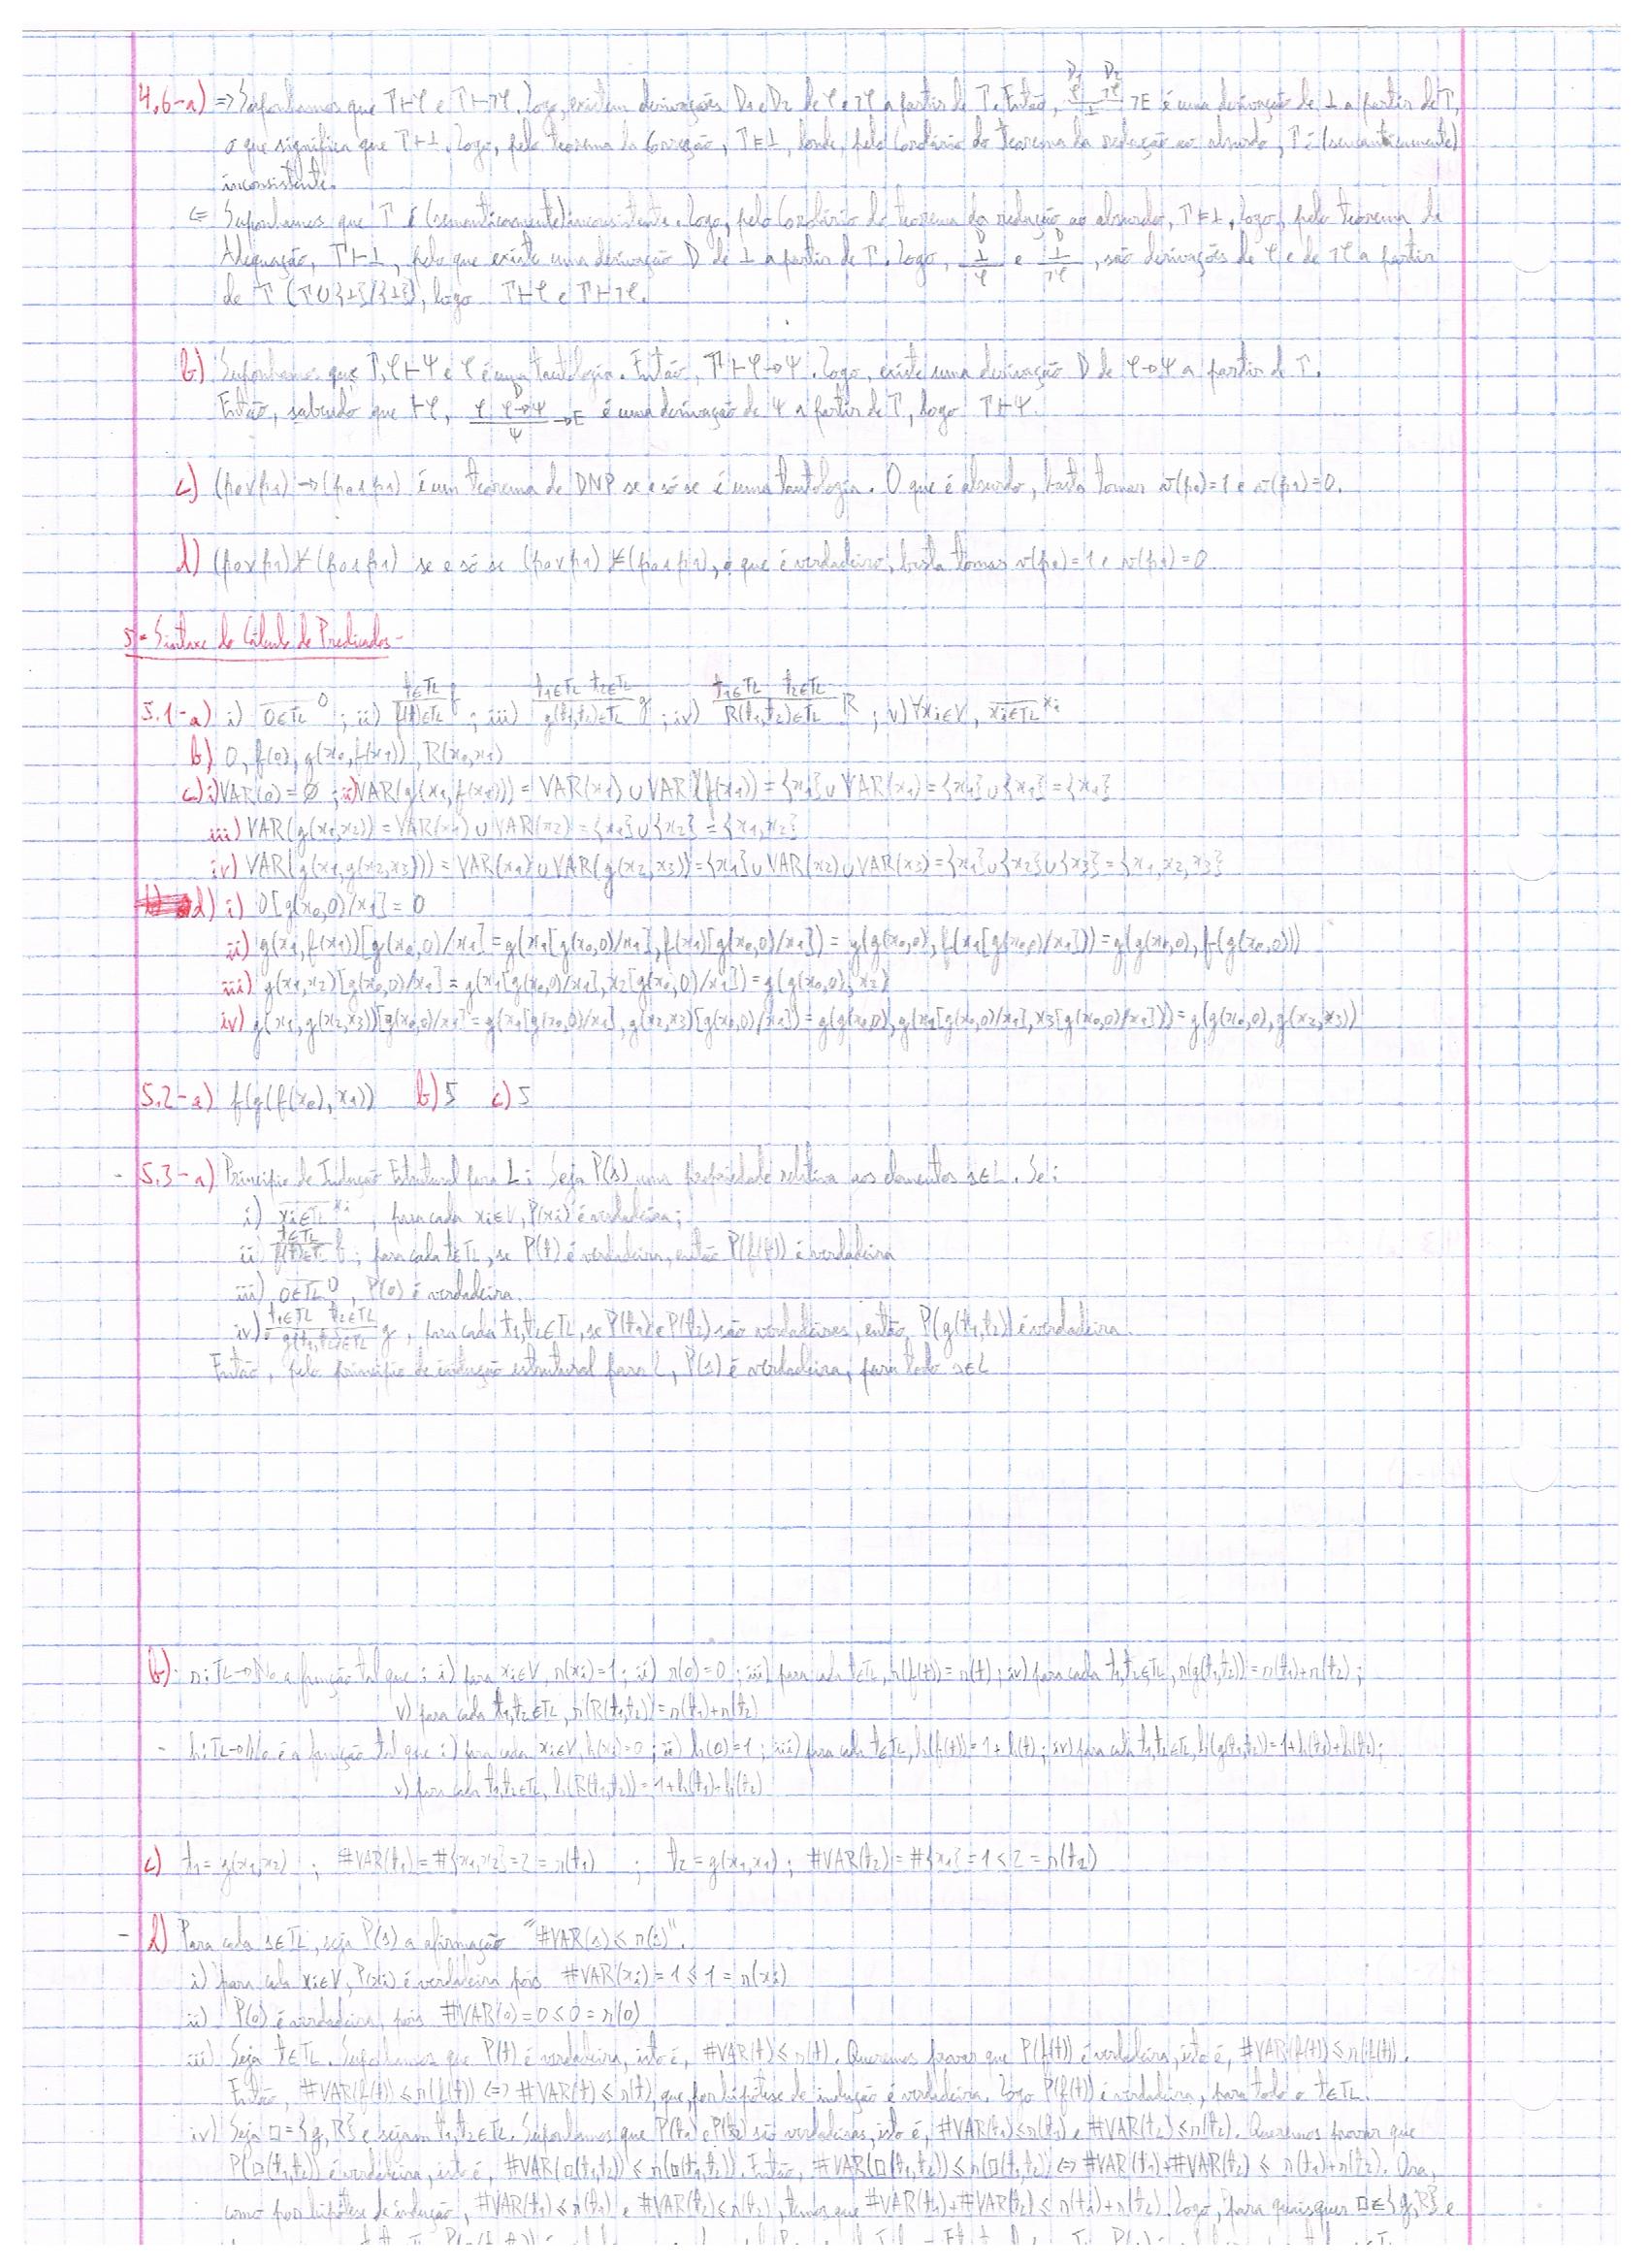 4.6-a) => Suponhamos que Γ⊢φ e Γ⊢¬φ. Logo, existem derivações D1 e D2 de φ e ¬φ a partir de Γ. Então, D1 D2 φ ¬φ / ⊥ ¬E é uma derivação de ⊥ a partir de Γ,
o que significa que Γ⊢⊥. Logo, pelo teorema da Correção, Γ⊨⊥, donde, pelo Corolário do teorema da redução ao absurdo, Γ é (semanticamente)
inconsistente.
<= Suponhamos que Γ é (semanticamente) inconsistente. Logo, pelo Corolário do teorema da redução ao absurdo, Γ⊨⊥, logo, pelo teorema da
Adequação, Γ⊢⊥, pelo que existe uma derivação D de ⊥ a partir de Γ. Logo, D ⊥ / φ e D ⊥ / ¬φ, são derivações de φ e de ¬φ a partir
de Γ (Γ∪{⊥}/{⊥}), logo Γ⊢φ e Γ⊢¬φ.
b) Suponhamos que Γ,φ⊢ψ e φ é uma tautologia. Então, Γ⊢φ→ψ. Logo, existe uma derivação D de φ→ψ a partir de Γ.
Então, sabendo que ⊢φ, φ D φ→ψ / ψ →E é uma derivação de ψ a partir de Γ, logo Γ⊢ψ.
c) (p0∨p1)→(p0∧p1) é um teorema de DNP se e só se é uma tautologia. O que é absurdo, basta tomar v(p0)=1 e v(p1)=0.
d) (p0∨p1)⊬(p0∧p1) se e só se (p0∨p1)⊭(p0∧p1), o que é verdadeiro, basta tomar v(p0)=1 e v(p1)=0
5- Sintaxe do Cálculo de Predicados-
5.1-a) i) 0∈TL 0 ; ii) t∈TL / f(t)∈TL f ; iii) t1∈TL t2∈TL / g(t1,t2)∈TL g ; iv) t1∈TL t2∈TL / R(t1,t2)∈TL R ; v) ∀xi∈V, xi∈TL xi
b) 0, f(0), g(x0,f(x1)), R(x0,x1)
c) i) VAR(0)=∅ ; ii) VAR(g(x1,f(x1)))=VAR(x1)∪VAR(f(x1))={x1}∪VAR(x1)={x1}∪{x1}={x1}
iii) VAR(g(x1,x2))=VAR(x1)∪VAR(x2)={x1}∪{x2}={x1,x2}
iv) VAR(g(x1,g(x2,x3)))=VAR(x1)∪VAR(g(x2,x3))={x1}∪VAR(x2)∪VAR(x3)={x1}∪{x2}∪{x3}={x1,x2,x3}
d) i) 0[g(x0,0)/x1]=0
ii) g(x1,f(x1))[g(x0,0)/x1]=g(x1[g(x0,0)/x1],f(x1)[g(x0,0)/x1])=g(g(x0,0),f(x1[g(x0,0)/x1]))=g(g(x0,0),f(g(x0,0)))
iii) g(x1,x2)[g(x0,0)/x1]=g(x1[g(x0,0)/x1],x2[g(x0,0)/x1])=g(g(x0,0),x2)
iv) g(x1,g(x2,x3))[g(x0,0)/x1]=g(x1[g(x0,0)/x1],g(x2,x3)[g(x0,0)/x1])=g(g(x0,0),g(x2[g(x0,0)/x1],x3[g(x0,0)/x1]))=g(g(x0,0),g(x2,x3))
5.2-a) f(g(f(x0),x1)) b) 5 c) 5
- 5.3-a) Princípio de Indução Estrutural para L: Seja P(s) uma propriedade relativa aos elementos s∈L. Se:
i) xi∈TL xi, para cada xi∈V, P(xi) é verdadeira;
ii) t∈TL / f(t)∈TL f; para cada t∈TL, se P(t) é verdadeira, então P(f(t)) é verdadeira
iii) 0∈TL 0, P(0) é verdadeira.
iv) t1∈TL t2∈TL / g(t1,t2)∈TL g, para cada t1,t2∈TL, se P(t1) e P(t2) são verdadeiras, então P(g(t1,t2)) é verdadeira.
Então, pelo princípio de indução estrutural para L, P(s) é verdadeira, para todo s∈L
b) · n:TL→N0 a função tal que: i) para xi∈V, n(xi)=1; ii) n(0)=0; iii) para cada t∈TL, n(f(t))=n(t); iv) para cada t1,t2∈TL, n(g(t1,t2))=n(t1)+n(t2);
v) para cada t1,t2∈TL, n(R(t1,t2))=n(t1)+n(t2)
- h:TL→N0 é a função tal que i) para cada xi∈V, h(xi)=0; ii) h(0)=1; iii) para cada t∈TL, h(f(t))=1+h(t); iv) para cada t1,t2∈TL, h(g(t1,t2))=1+h(t1)+h(t2);
v) para cada t1,t2∈TL, h(R(t1,t2))=1+h(t1)+h(t2)
c) t1=g(x1,x2) ; #VAR(t1)=#{x1,x2}=2=n(t1) ; t2=g(x1,x1); #VAR(t2)=#{x1}=1<2=n(t2)
- d) Para cada s∈TL, seja P(s) a afirmação "#VAR(s)≤n(s)".
i) para cada xi∈V, P(xi) é verdadeira pois #VAR(xi)=1≤1=n(xi)
ii) P(0) é verdadeira, pois #VAR(0)=0≤0=n(0)
iii) Seja t∈TL. Suponhamos que P(t) é verdadeira, isto é, #VAR(t)≤n(t). Queremos provar que P(f(t)) é verdadeira, isto é, #VAR(f(t))≤n(f(t)).
Então, #VAR(f(t))≤n(f(t)) <=> #VAR(t)≤n(t), que, por hipótese de indução é verdadeira. Logo P(f(t)) é verdadeira, para todo o t∈TL.
iv) Seja □={g,R} e sejam t1,t2∈TL. Suponhamos que P(t1) e P(t2) são verdadeiras, isto é, #VAR(t1)≤n(t1) e #VAR(t2)≤n(t2). Queremos provar que
P(□(t1,t2)) é verdadeira, isto é, #VAR(□(t1,t2))≤n(□(t1,t2)). Então, #VAR(□(t1,t2))≤n(□(t1,t2)) <=> #VAR(t1)+#VAR(t2)≤n(t1)+n(t2). Ora,
como por hipótese de indução, #VAR(t1)≤n(t1) e #VAR(t2)≤n(t2), temos que #VAR(t1)+#VAR(t2)≤n(t1)+n(t2). Logo, para quaisquer □∈{g,R} e